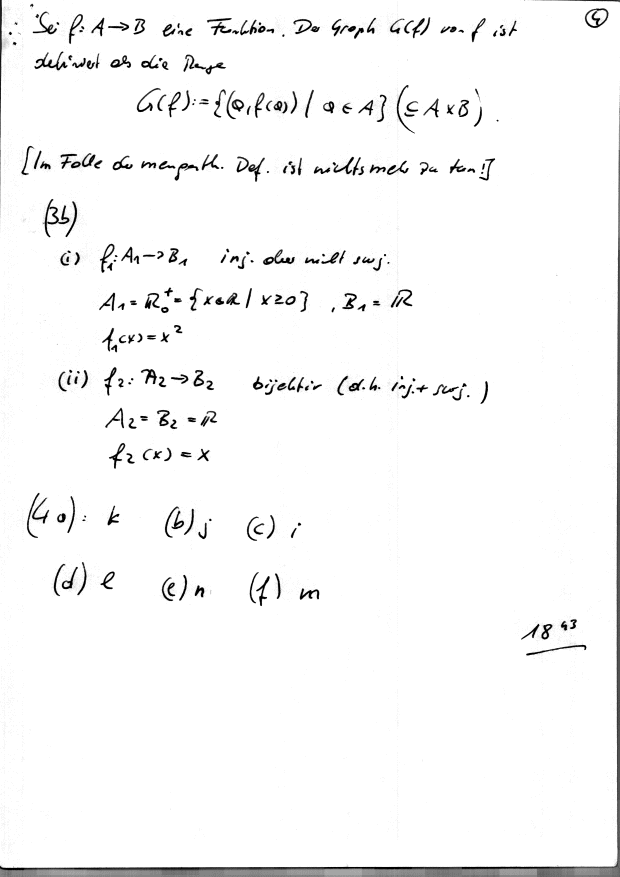 ④
∴ Sei f: A → B eine Funktion. Der Graph G(f) von f ist
definiert als die Menge
G(f) := {(a, f(a)) | a ∈ A} (⊆ A×B).
[Im Falle der mengenth. Def. ist nichts mehr zu tun!]
(3b)
(i) f₁: A₁ → B₁ inj. aber nicht surj.
A₁ = ℝ₀⁺ = {x∈ℝ | x≥0}, B₁ = ℝ
f₁(x) = x²
(ii) f₂: A₂ → B₂ bijektiv (d.h. inj.+ surj.)
A₂ = B₂ = ℝ
f₂(x) = x
(4a): k (b) j (c) i
(d) l (e) n (f) m
18⁴³